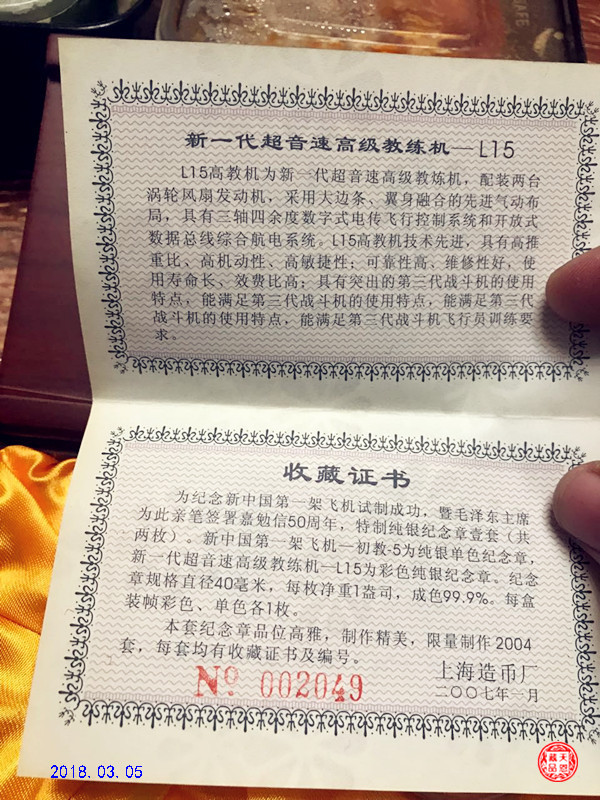 新一代超音速高级教练机—L15
L15高教机为新一代超音速高级教练机，配装两台
涡轮风扇发动机，采用大边条、翼身融合的先进气动布
局，具有三轴四余度数字式电传飞行控制系统和开放式
数据总线综合航电系统。L15高教机技术先进，具有高推
重比、高机动性、高敏捷性；可靠性高、维修性好，使
用寿命长、效费比高；具有突出的第三代战斗机的使用
特点，能满足第三代战斗机的使用特点，能满足第三代
战斗机的使用特点，能满足第三代战斗机飞行员训练要
求。
收藏证书
为纪念新中国第一架飞机试制成功，暨毛泽东主席
为此亲笔签署嘉勉信50周年，特制纯银纪念章壹套（共
两枚）。新中国第一架飞机—初教-5为纯银单色纪念章，
新一代超音速高级教练机—L15为彩色纯银纪念章。纪念
章规格直径40毫米，每枚净重1盎司，成色99.9%。每盒
装帧彩色、单色各1枚。
本套纪念章品位高雅，制作精美，限量制作2004
套，每套均有收藏证书及编号。
上海造币厂
Nº 002049
二〇〇七年一月
2018.03.05
天恩藏品